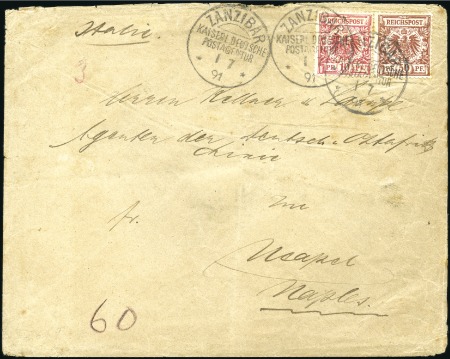 Italie
ZANZIBAR
KAISERL. DEUTSCHE
POSTAGENTUR
1 7
91
ZANZIBAR
KAISERL. DEUTSCHE
POSTAGENTUR
1
91
REICHSPOST
10
PF
REICHSPOST
50 PF
1/7
3
Herren Kellner &
Agenten der Deutsch Ostafrika
Linie
fr.
in
Neapel
Naples.
60